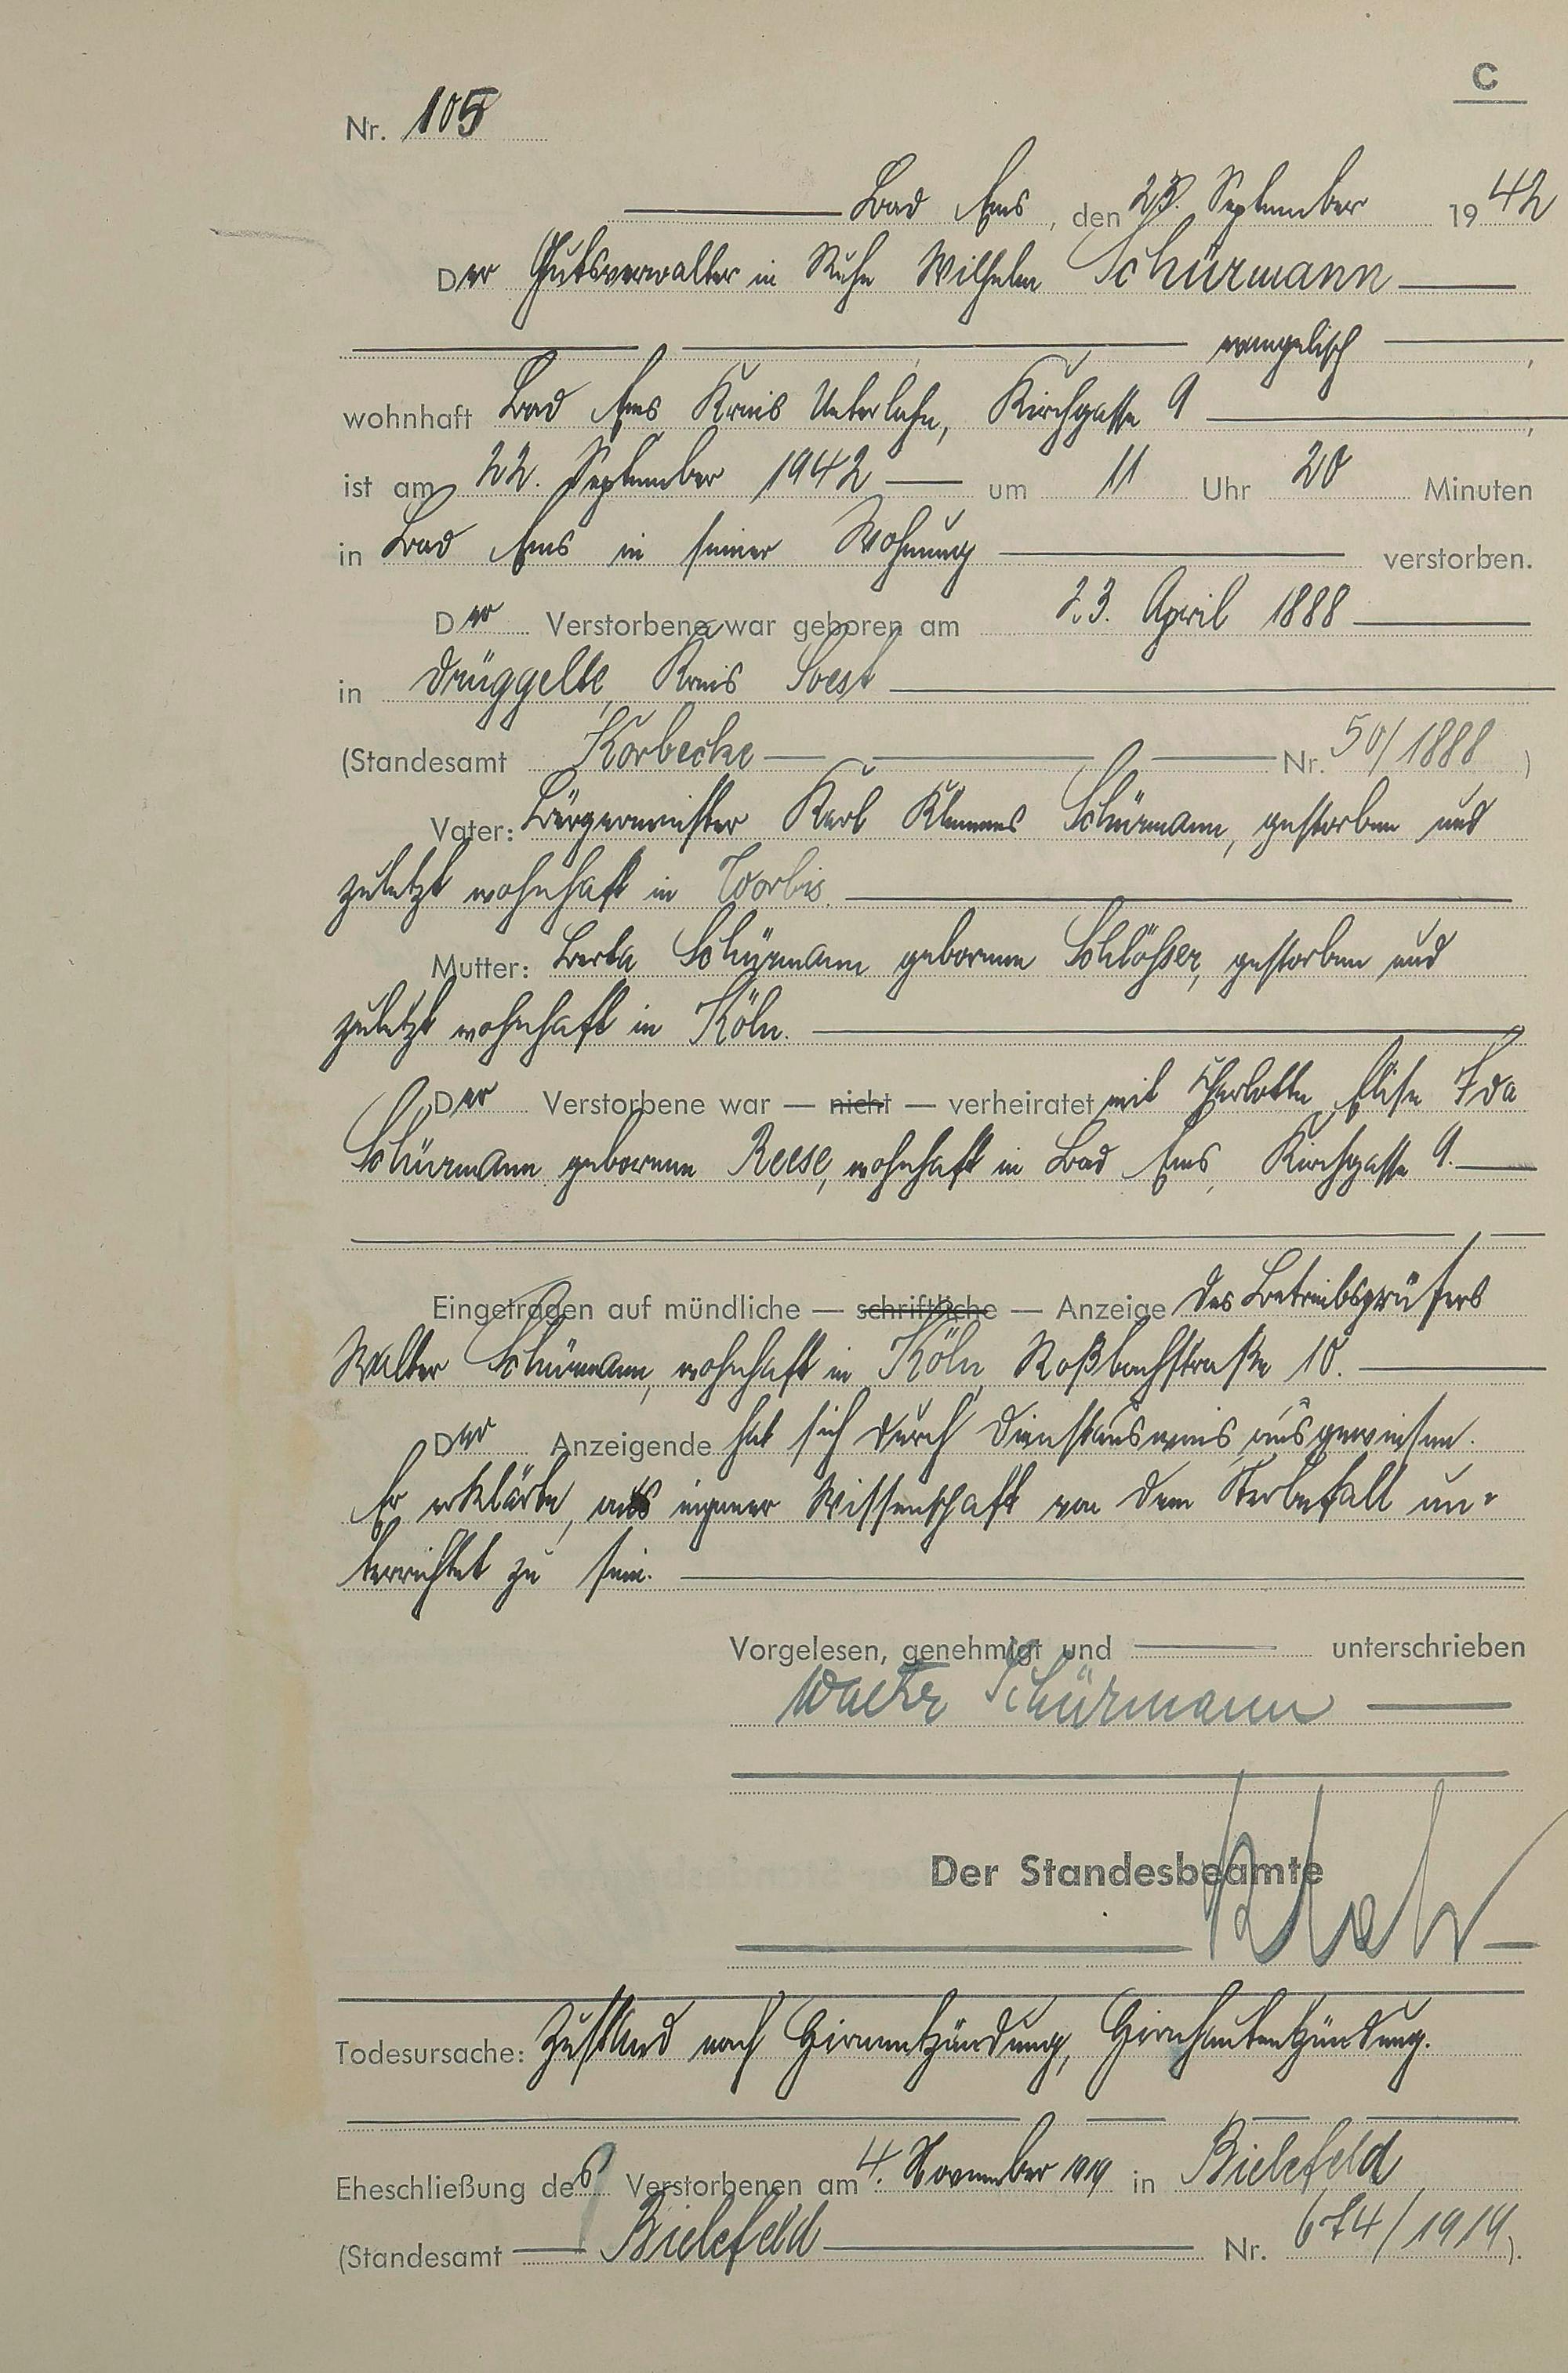 C
Nr. 105
Bad Ems, den 23. September 1942
Der Gutsverwalter in Ruhe Wilhelm Schürmann
evangelisch,
wohnhaft Bad Ems, Kreis Unterlahn, Kirchgasse 9,
ist am 22. September 1942 um 11 Uhr 20 Minuten
in Bad Ems in seiner Wohnung verstorben.
Der Verstorbene war geboren am 23. April 1888
in Drüggelte, Kreis Soest
(Standesamt Körbecke Nr. 50/1888)
Vater: Bürgermeister Karl Klemens Schürmann, gestorben und
zuletzt wohnhaft in Worbis.
Mutter: Berta Schürmann geborene Schlösser, gestorben und
zuletzt wohnhaft in Köln.
Der Verstorbene war — nicht — verheiratet mit Charlotte Elise Ida
Schürmann geborene Reese, wohnhaft in Bad Ems, Kirchgasse 9.
Eingetragen auf mündliche — schriftliche — Anzeige des Betriebsprüfers
Walter Schürmann, wohnhaft in Köln, Roßbachstraße 10.
Der Anzeigende hat sich durch Dienstausweis ausgewiesen.
Er erklärte, aus eigener Wissenschaft von dem Sterbefall un-
terrichtet zu sein.
Vorgelesen, genehmigt und unterschrieben
Walter Schürmann
Der Standesbeamte
Todesursache: Zustand nach Hirnentzündung, Hirnhautentzündung.
Eheschließung des Verstorbenen am 4. November 1919 in Bielefeld
(Standesamt Bielefeld Nr. 674/1919).